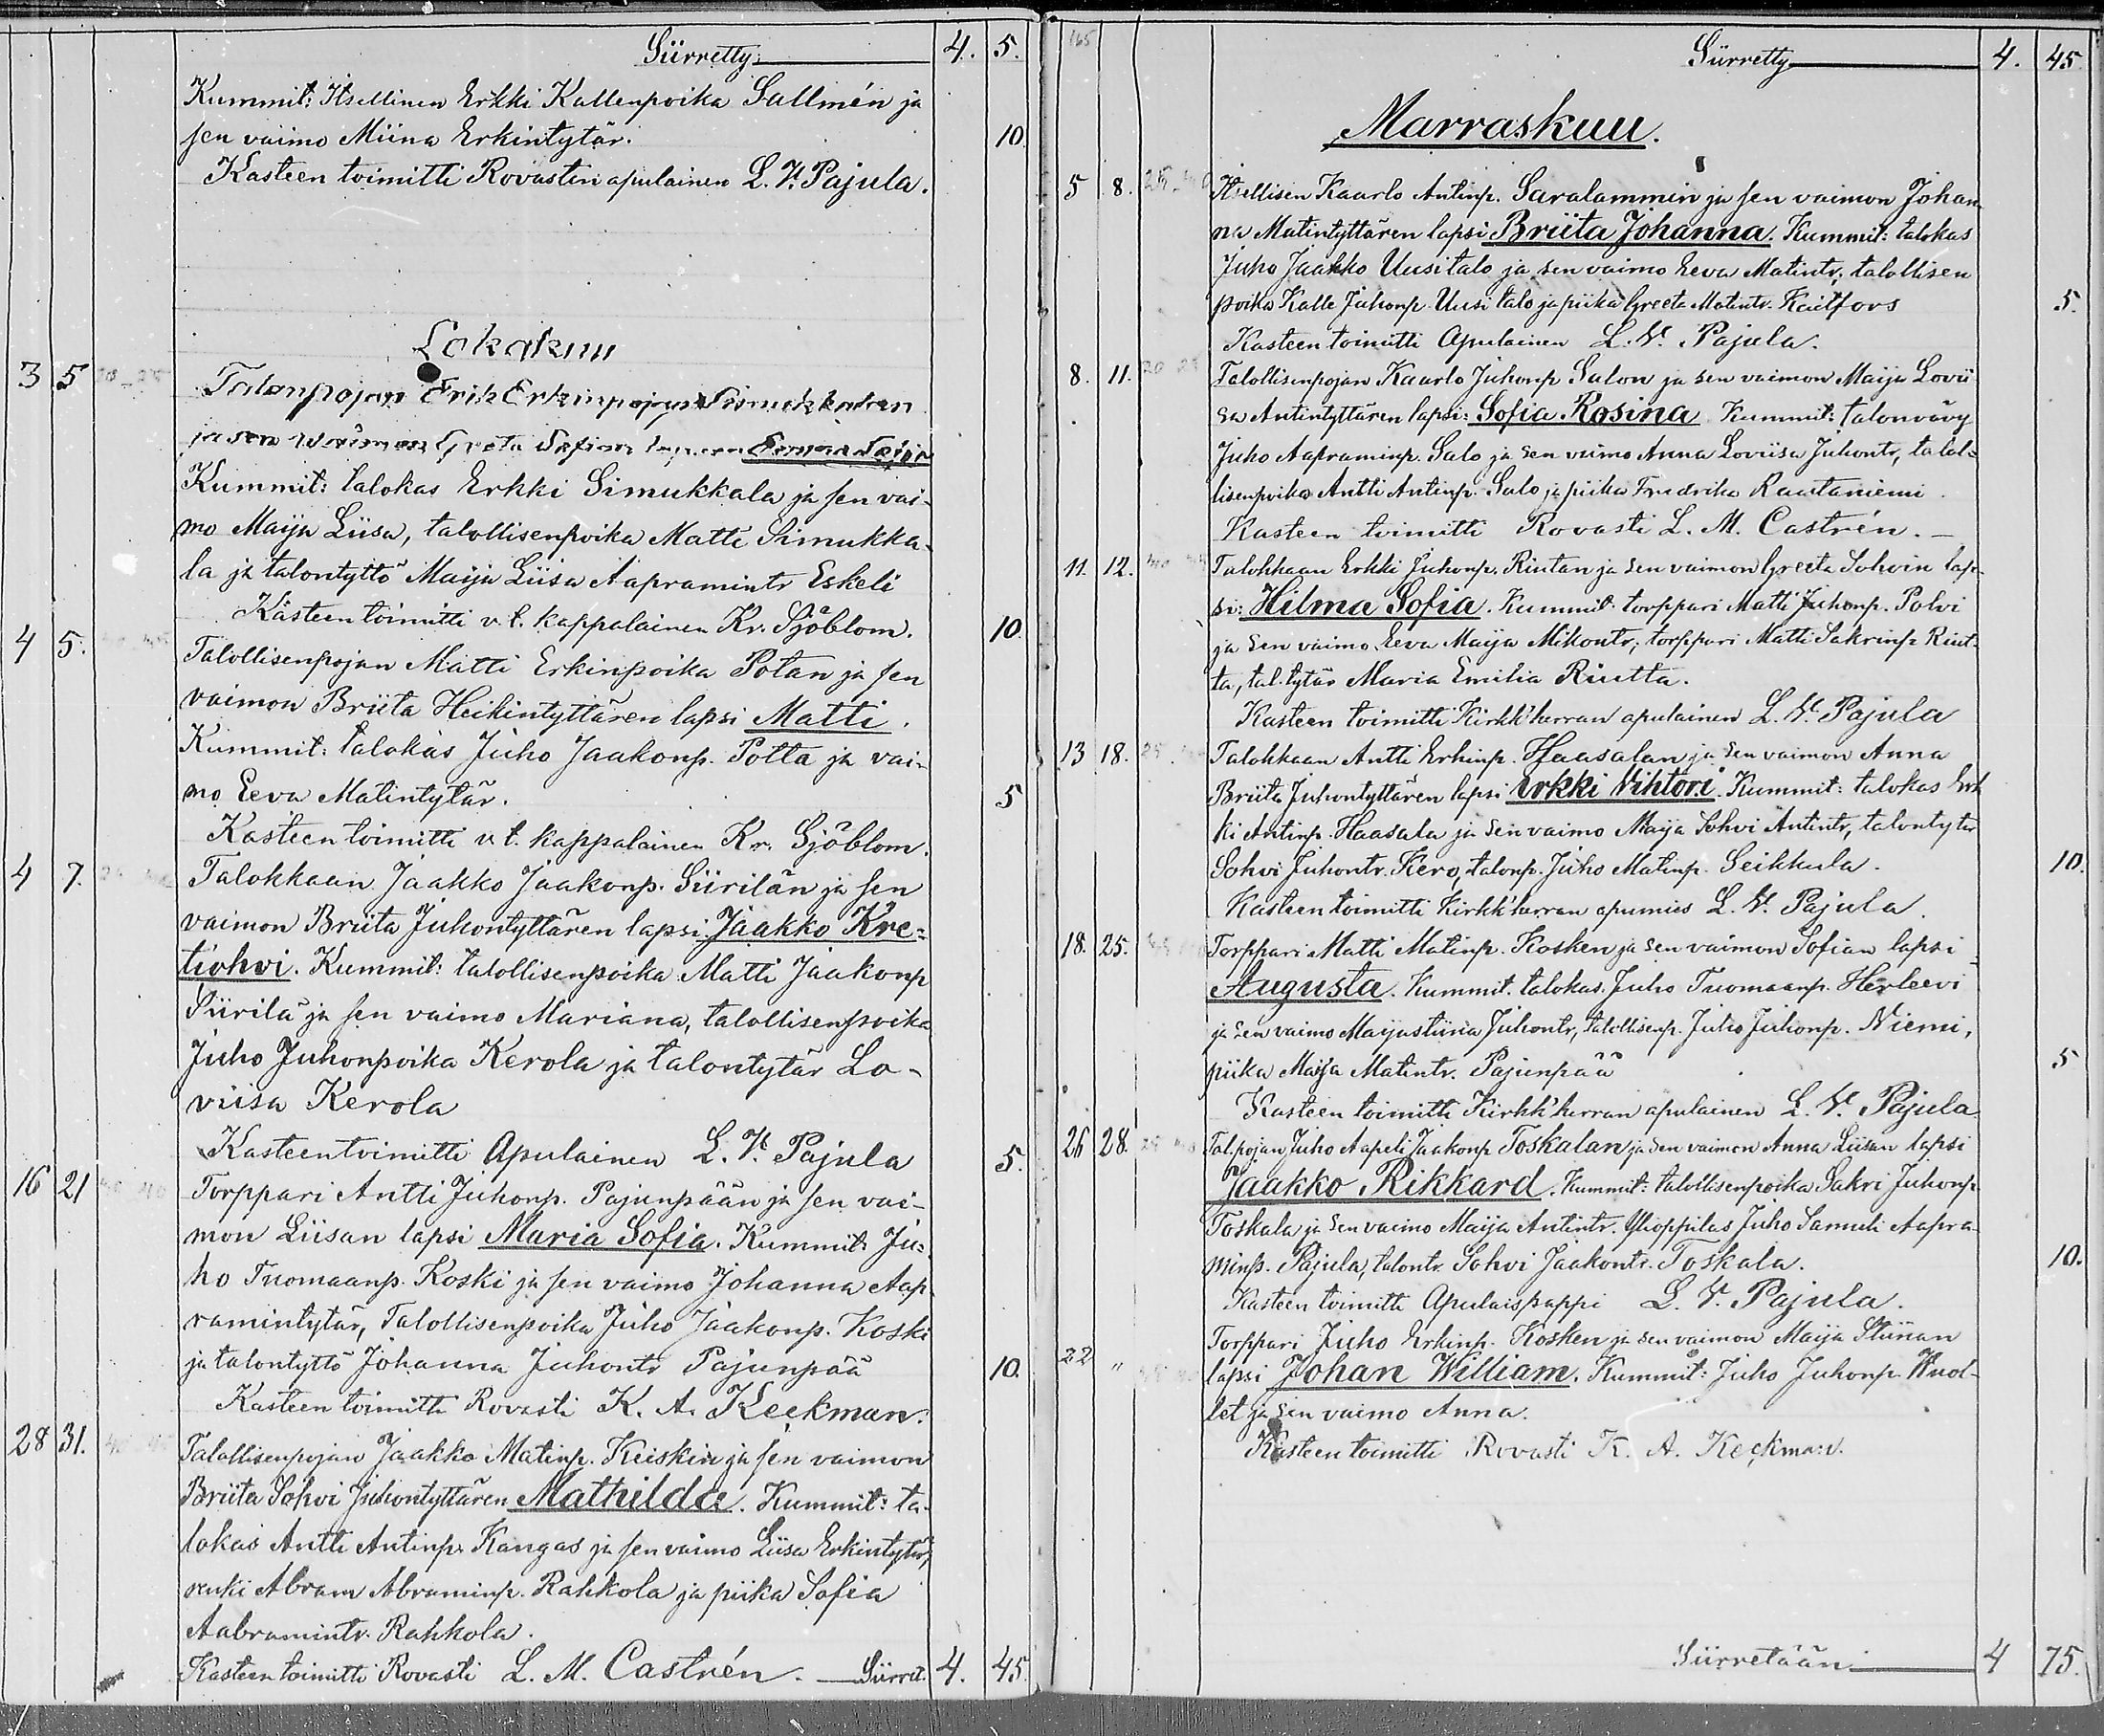 Siirretty 4. 5.
Kummit: Itsellinen Erkki Kallenpoika Sallmén ja
sen vaimo Miina Erkintytär. 10.
Kasteen toimitti Rovastin apulainen L. V. Pajula.
Lokakuu
3 5 Talonpojan Erik Erkinpojan Simukkalan
ja sen waimon Greta Sofian lapsen
Kummit: talokas Erkki Simukkala ja sen vai-
mo Maija Liisa, talollisenpoika Matti Simukka-
la ja talontyttö Maija Liisa Aapramintr Eskeli
Kasteen toimitti v. t. kappalainen Kr. Sjöblom. 10.
4 5. Talollisenpojan Matti Erkinpoika Potan ja sen
vaimon Briita Heikintyttären lapsi Matti.
Kummit: talokas Juho Jaakonp. Potta ja vai-
mo Eeva Matintytär. 5
Kasteen toimitti v. t. kappalainen Kr. Sjöblom.
4 7. Talokkaan Jaakko Jaakonp. Siirilän ja sen
vaimon Briita Juhontyttären lapsi Jaakko Kre-
tiohvi. Kummit: talollisenpoika Matti Jaakonp
Siirilä ja sen vaimo Mariana, talollisenpoika
Juho Juhonpoika Kerola ja talontytär Lo-
viisa Kerola
Kasteen toimitti Apulainen L. V. Pajula 5.
16 21 Torppari Antti Juhonp. Pajunpään ja sen vai-
mon Liisan lapsi Maria Sofia. Kummit: Ju-
ho Tuomaanp. Koski ja sen vaimo Johanna Aap-
ramintytär, Talollisenpoika Juho Jaakonp. Koski
ja talontyttö Johanna Juhontr Pajunpää 10.
Kasteen toimitti Rovasti K. A. Keckman.
28 31. Talollisenpojan Jaakko Matinp. Keiskin ja sen vaimon
Briita Sohvi Juhontyttären Mathilda. Kummit: ta-
lokas Antti Antinp. Kangas ja sen vaimo Liisa Erkintytär,
renki Abram Abraminp. Rahkola ja piika Sofia
Aabramintr. Rahkola.
Kasteen toimitti Rovasti L. M. Castrén. Siirret. 4. 45.
165
Siirretty 4. 45.
Marraskuu.
5 8. Itsellisen Kaarlo Antinp. Saralammin ja sen vaimon Johan-
na Matintyttären lapsi Briita Johanna. Kummit: talokas
Juho Jaakko Uusitalo ja sen vaimo Eeva Matintr, talollisen
poika Kalle Juhonp. Uusi talo ja piika Greeta Matintr. Kaitfors 5.
Kasteen toimitti Apulainen L. V. Pajula.
8. 11. Talollisenpojan Kaarlo Juhonp Salon ja sen vaimon Maija Lovii
sa Antintyttären lapsi: Sofia Rosina Kummit: talonvävy
Juho Aapraminp. Salo ja sen vaimo Anna Loviisa Juhontr, talol-
lisenpoika Antti Antinp. Salo ja piika Fredrika Rautaniemi.
Kasteen toimitti Rovasti L. M. Castrén.
11. 12. Talokkaan Erkki Juhonp. Riutan ja sen vaimon Greeta Sohvin lap-
si: Hilma Sofia. Kummit: torppari Matti Juhonp. Polvi
ja sen vaimo Eeva Maija Mikontr, torppari Matti Sakrinp. Riut-
ta, tal. tytär Maria Emilia Riutta.
Kasteen toimitti Kirkk'herran apulainen L. V. Pajula
13 18. Talokkaan Antti Erkinp. Haasalan ja sen vaimon Anna
Briita Juhontyttären lapsi Erkki Vihtori. Kummit: talokas Erk
ki Antinp. Haasala ja sen vaimo Maija Sohvi Antintr, talontytär
Sohvi Juhontr. Kero, talonp. Juho Matinp. Seikkula. 10.
Kasteen toimitti Kirkk'herran apumies L. V. Pajula.
18. 25. Torppari Matti Matinp. Kosken ja sen vaimon Sofian lapsi
Augusta. Kummit. talokas Juho Tuomaanp. Herleevi
ja sen vaimo Maijastiina Juhontr, talollisenp. Juho Juhonp. Niemi,
piika Maija Matintr. Pajunpää 5
Kasteen toimitti Kirkk'herran apulainen L. V. Pajula
26 28. Tal.pojan Juho Aapeli Jaakonp. Toskalan ja sen vaimon Anna Liisan lapsi
Jaakko Rikkard. Kummit: talollisenpoika Sakri Juhonp.
Toskala ja sen vaimo Maija Antintr. Ylioppilas Juho Samuli Aapra-
minp. Pajula, talontr. Sohvi Jaakontr. Toskala. 10.
Kasteen toimitti Apulaispappi L. V. Pajula.
22 " Torppari Juho Erkinp. Kosken ja sen vaimon Maija Stiinan
lapsi Johan William. Kummit: Juho Juhonp. Wuol-
let ja sen vaimo Anna.
Kasteen toimitti Rovasti K. A. Keckman.
Siirretään 4 75.